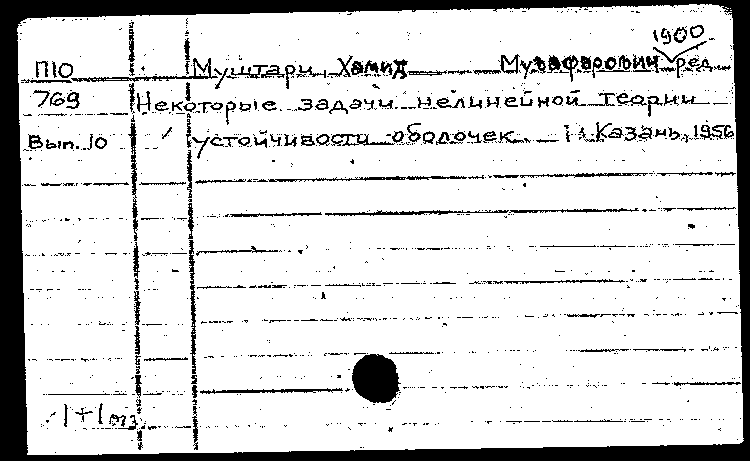 1900
П10 Муштари, Хамид Музафарович ред.
769 Некоторые задачи нелинейной теории
Вып. 10 устойчивости оболочек. Казань, 1956
1+1